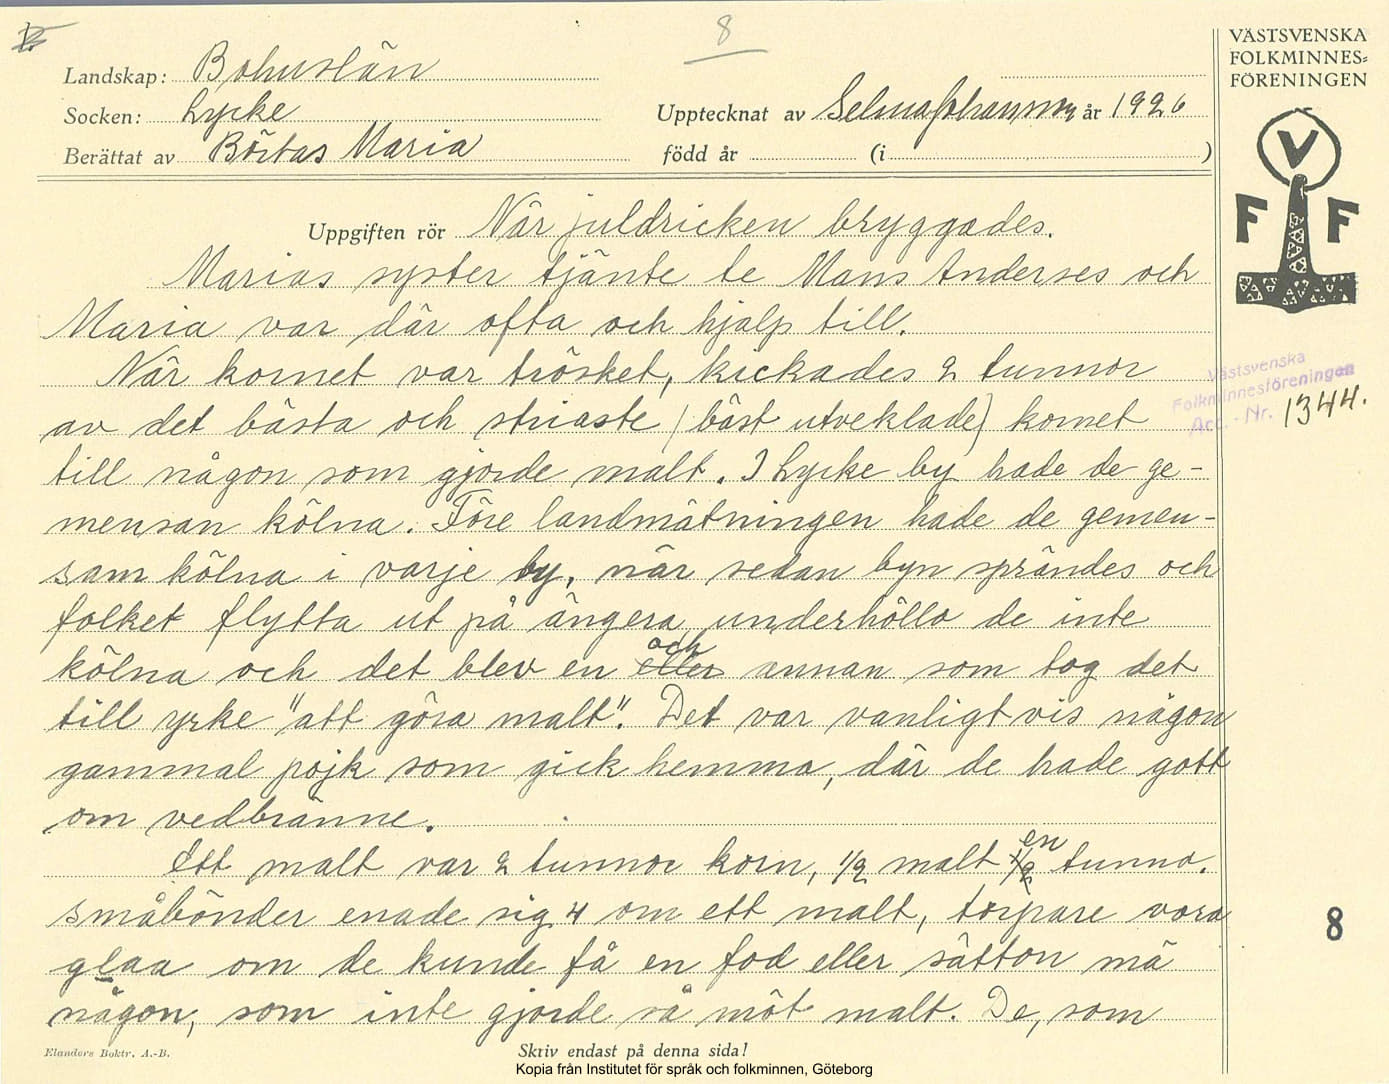 8
VÄSTSVENSKA
FOLKMINNES=
FÖRENINGEN
Landskap: Bohuslän
Socken: Lycke
Upptecknat av Selma Johansson år 1926
Berättat av Börtas Maria
född år (i )
V
F F
Uppgiften rör När juldricken bryggades.
Marias syster tjänte te Mans Anderses och
Maria var där ofta och hjalp till.
När kornet var trösket, skickades 2 tunnor
av det bästa och striaste (bäst utveklade) kornet
till någon som gjorde malt. I Lycke by hade de ge-
mensan kölna. Före landmätningen hade de gemen-
sam kölna i varje by, när sedan byn sprändes och
folket flytta ut på ängera underhöllo de inte
kölna och det blev en eller och annan som tog det
till yrke "att göra malt". Det var vanligt vis någon
gammal pojk som gick hemma, där de hade gott
om vedbränne.
Ett malt var 2 tunnor korn, 1/2 malt 1/2 en tunna.
småbönder enade sig 4 om ett malt, torpare vora
glaa om de kunde få en fod eller sätton mä
någon, som inte gjorde så möt malt. De, som
Västsvenska
Folkminnesföreningen
Acc. - Nr. 1344.
8
Elanders Boktr. A.-B.
Skriv endast på denna sida!
Kopia från Institutet för språk och folkminnen, Göteborg